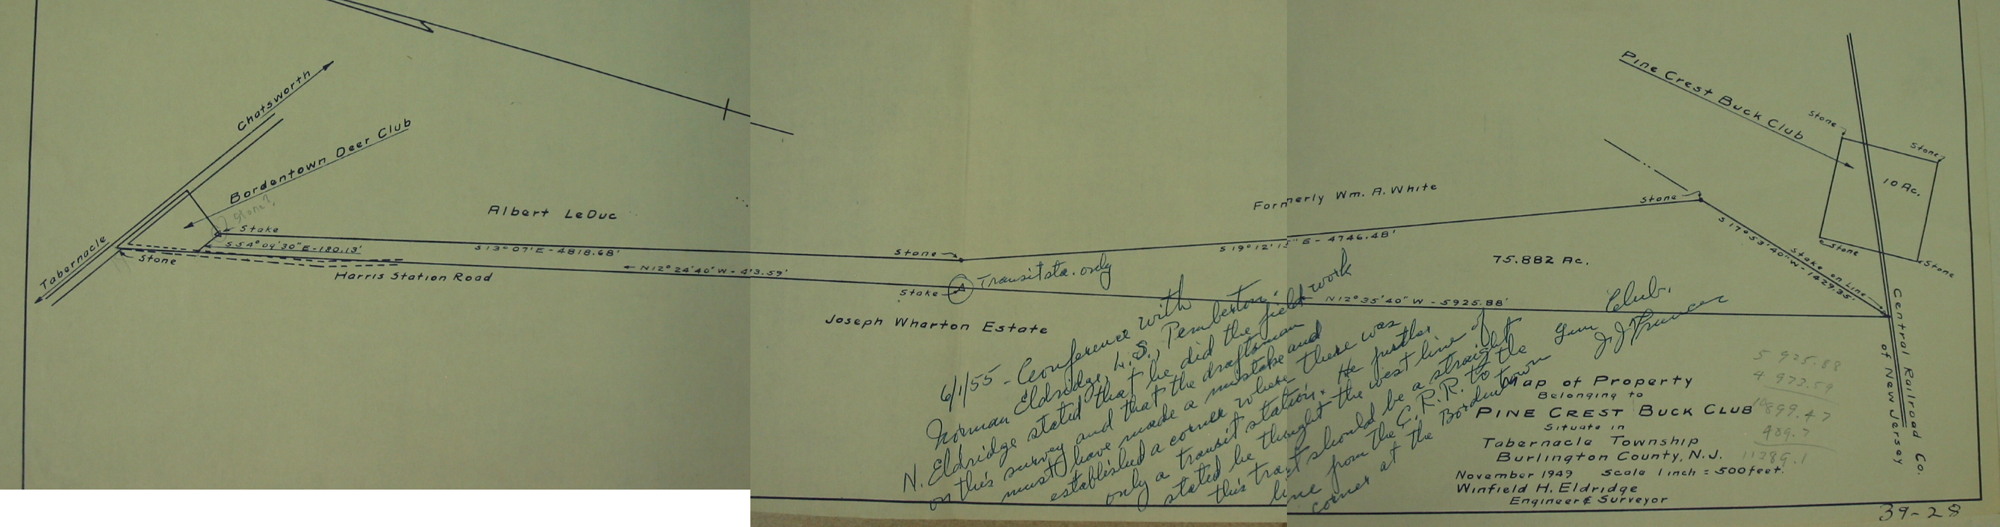 Chatsworth
Bordentown Deer Club
Tabernacle
Stone?
Stake
S 54° 09' 30" E - 180.13'
Stone
Harris Station Road
Albert LeDuc
S 13° 07' E - 4818.68'
N 12° 24' 40" W -
Stone
Stake
Transit sta. only
Joseph Wharton Estate
Formerly Wm. A. White
S 19° 12' E - 4746.48'
75.882 Ac.
N 12° 35' 40" W - 5925.88'
Stone
S 17° 53' 40" W - 1429.35'
Stake on Line
Pine Crest Buck Club
Stone
Stone
10 Ac.
Stone
Stone
Central Railroad Co.
of New Jersey
6/1/55 - Conference with
Norman Eldridge, L.S., Pemberton.
N. Eldridge stated that he did the field work
on this survey and that the draftsman
must have made a mistake and
established a corner where there was
only a transit station. He further
stated he thought the west line of
this tract should be a straight
line from the C.R.R. to the
corner at the Bordentown Gun Club.
J.J. Truncer
5 925.88
4 973.59
10899.47
489.7
11389.1
Map of Property
Belonging to
PINE CREST BUCK CLUB
Situate in
Tabernacle Township
Burlington County, N.J.
November 1949 Scale 1 inch = 500 feet.
Winfield H. Eldridge
Engineer & Surveyor
39-28